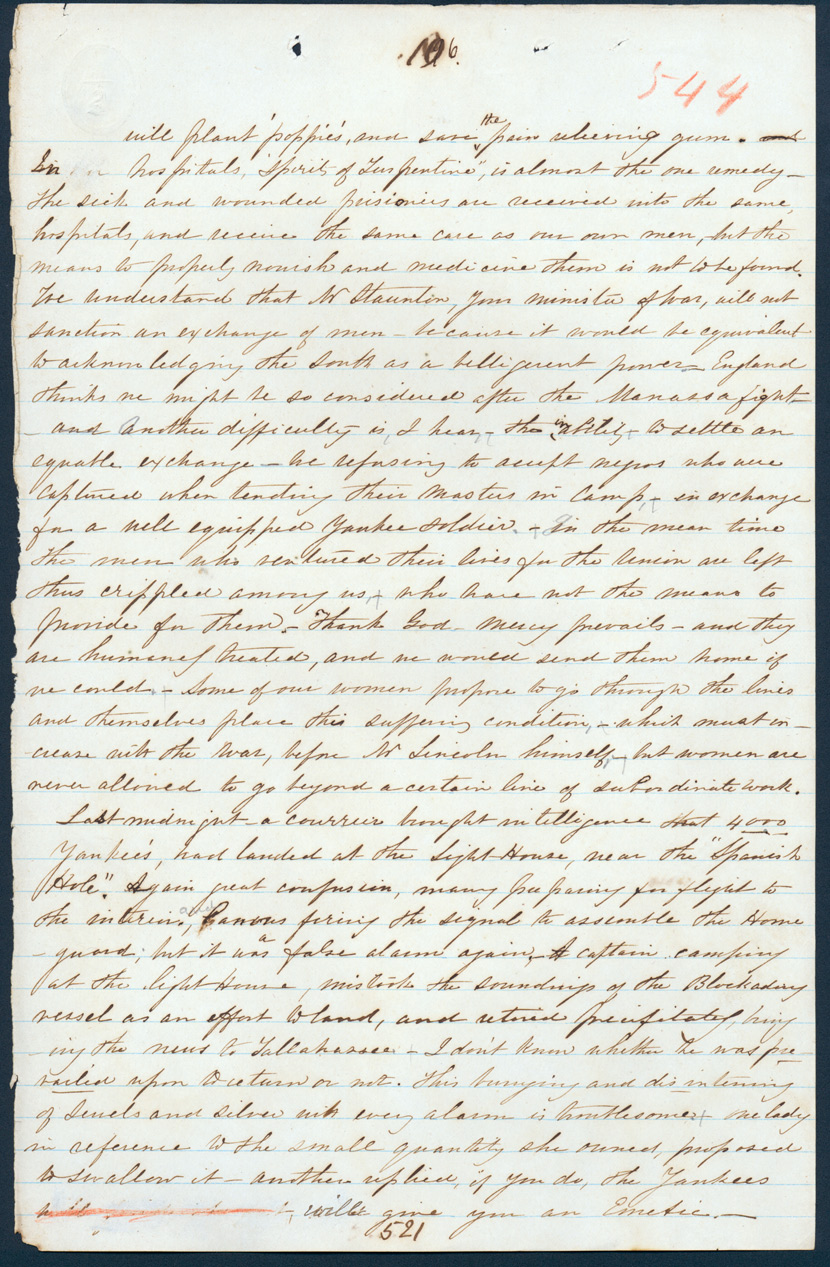 196.
544
will plant 'poppies', and save the pain relieving gum. and
In hospitals, "Spirit of Turpentine", is almost the one remedy –
the sick and wounded prisioners are received into the same
hospitals, and receive the same care as our own men, but the
means to properly nourish and medicine them is not to be found.
We understand that Mr Staunton, your minister of War, will not
sanction an exchange of men – because it would be equivalent
to acknowledging the South as a belligerent power – England
thinks we might be so considered after the Manassa fight –
– and another difficulty is, I hear, – the inability – to settle an
equable exchange – we refusing to accept negros who were
captured when tending their Masters in Camp, – in exchange
for a well equipped Yankee soldier. – In the mean time
the men who ventured their lives for the Union are left
thus crippled among us, – who have not the means to
provide for them. – Thank God – Mercy prevails – and they
are humanely treated, and we would send them home if
we could – Some of our women propose to go through the lines
and themselves place this suffering condition, – which must in –
crease with the War, before Mr Lincoln himself, – but women are
never allowed to go beyond a certain line of subordinate work.
Last midnight – a courrier brought intelligence that 4000
Yankee's, had landed at the Light-House, near the "Spanish
Hole". Again great confusion, many preparing for flight to
the interior, and Canons firing the signal to assemble the Home
– guard; but it was a false alarm again, – A captain camping
at the Light House, mistook the soundings of the Blockadery
vessel as an effort to land, and retired precipitately, bring
– ing the news to Tallahassee – I don't know whether he was pre –
vailed upon to return or not. This burying and disintering
of Jewels and silver with every alarm is troublesome, – one lady
in reference to the small quantity she owned, proposed
to swallow it – another replied, if you do, the Yankees
will give you an Emetic. –
521